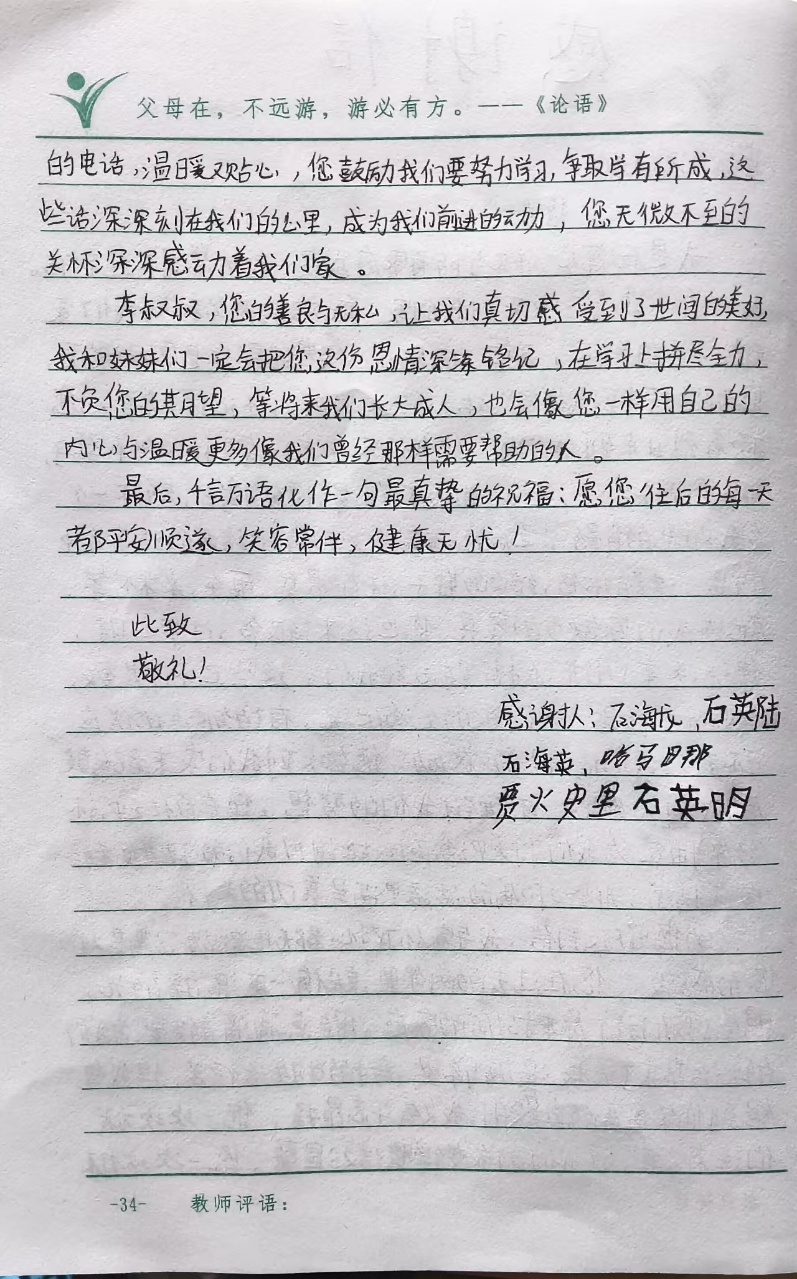 父母在，不远游，游必有方。——《论语》
的电话，温暖又贴心，您鼓励我们要努力学习，争取学有所成，这
些话深深刻在我们的心里，成为我们前进的动力，您无微不至的
关怀深深感动着我们家。
李叔叔，您的善良与无私，让我们真切感受到了世间的美好，
我和妹妹们一定会把您这份恩情深深铭记，在学习上拼尽全力，
不负您的期望，等将来我们长大成人，也会像您一样用自己的
内心与温暖更多像我们曾经那样需要帮助的人。
最后，千言万语化作一句最真挚的祝福：愿您往后的每一天
都平安顺遂，笑容常伴，健康无忧！
此致
敬礼！
感谢人：石海龙、石英陆
石海英、哈马日那
贾火史里 石英明
-34- 教师评语：